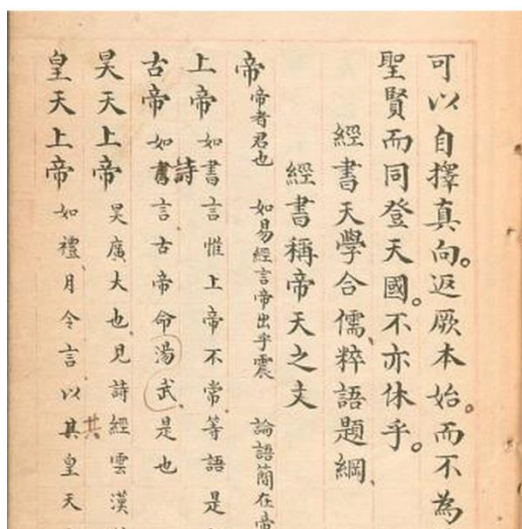 可以自擇真向。返厥本始。而不為
聖賢而同登天國。不亦休乎。
經書天學合儒、粹語題綱、
經書稱帝天之文
帝 帝者君也 如易經言帝出乎震 論語簡在帝
上帝 如書言惟上帝不常、等語是
古帝 如詩書言古帝命湯武、是也
昊天上帝 昊廣大也、見詩經雲漢
皇天上帝 如禮、月令言、以共其皇天